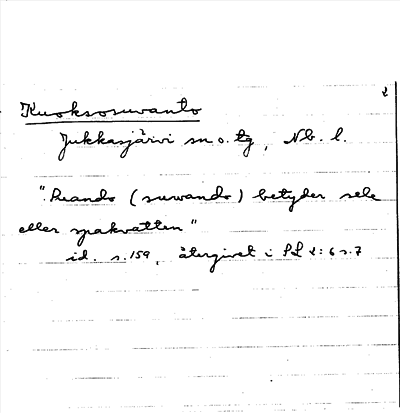 2
Kuoksosuwanto
Jukkasjärvi sn o. tg, Nb. l.
"Suando (suwando) betyder sele
eller spakvatten"
id. s. 159, återgivet i SL 2:6 s. 7